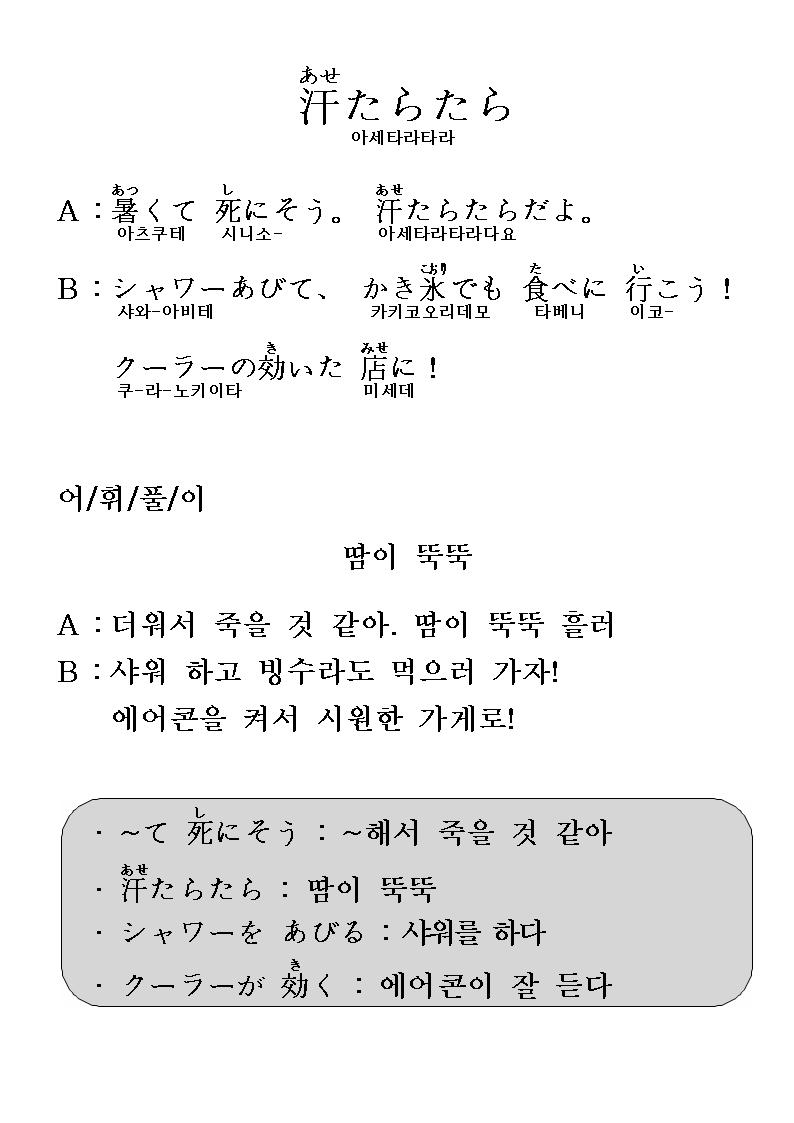 あせ
汗たらたら
아세타라타라
あつ し あせ
A : 暑くて 死にそう。 汗たらたらだよ。
아츠쿠테 시니소- 아세타라타라다요
こおり た い
B : シャワーあびて、 かき氷でも 食べに 行こう !
샤와-아비테 카키코오리데모 타베니 이코-
き みせ
クーラーの効いた 店に !
쿠-라-노키이타 미세데
어/휘/풀/이
땀이 뚝뚝
A : 더워서 죽을 것 같아. 땀이 뚝뚝 흘러
B : 샤워 하고 빙수라도 먹으러 가자!
에어콘을 켜서 시원한 가게로!
し
· ~て 死にそう : ~해서 죽을 것 같아
あせ
· 汗たらたら : 땀이 뚝뚝
· シャワーを あびる : 샤워를 하다
き
· クーラーが 効く : 에어콘이 잘 듣다